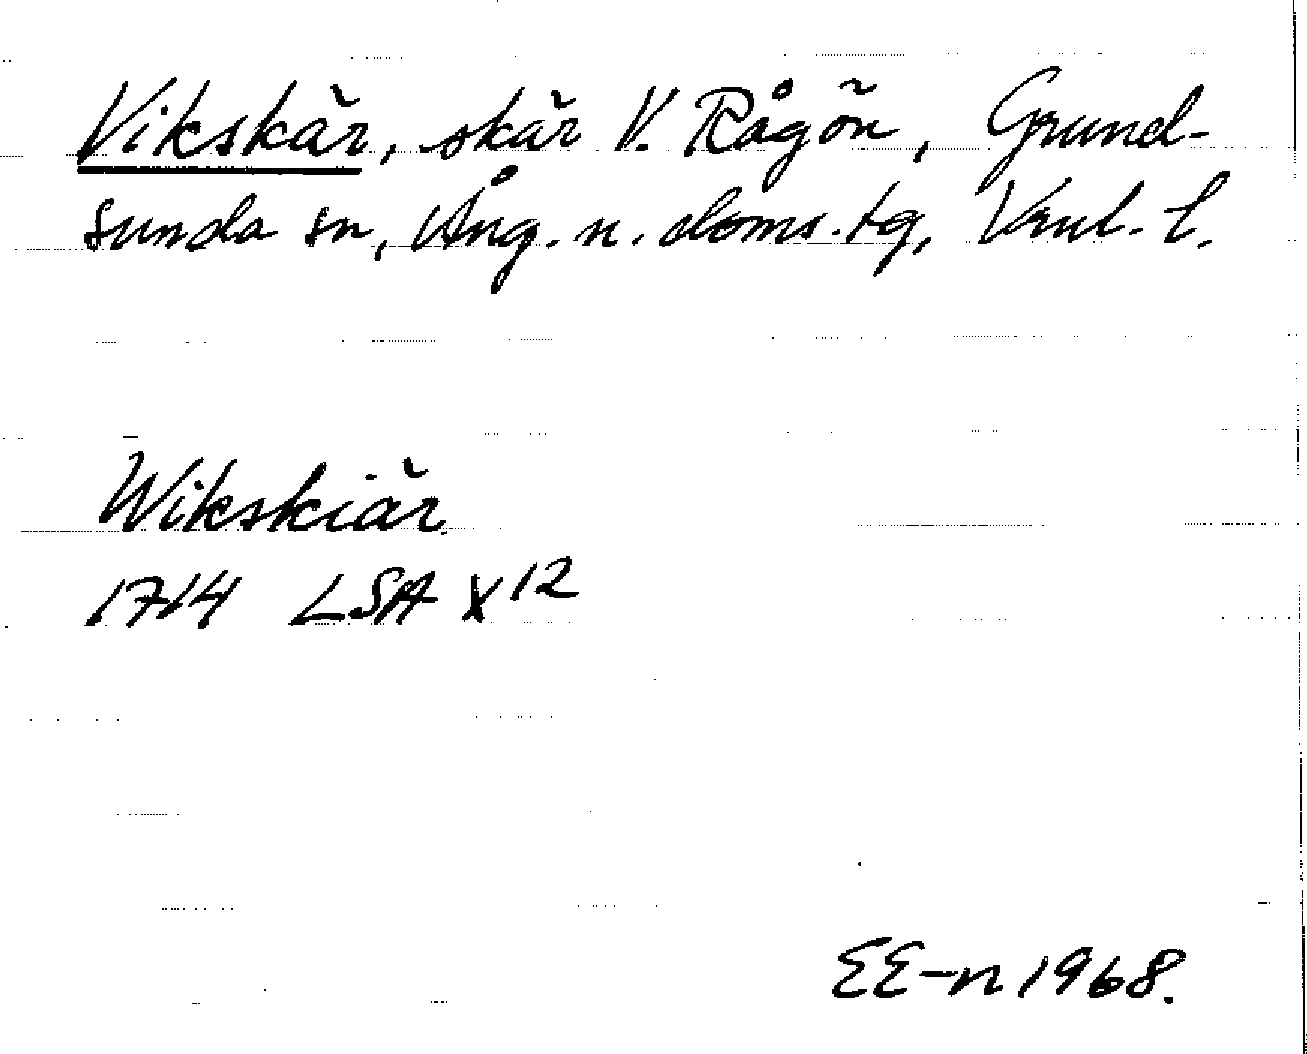 Vikskär, skär V. Rågön, Grund-
sunda sn, Ång. n. doms. tg, Vnl. l.
Wikskiär
1714 LSA X 12
EE-n 1968.